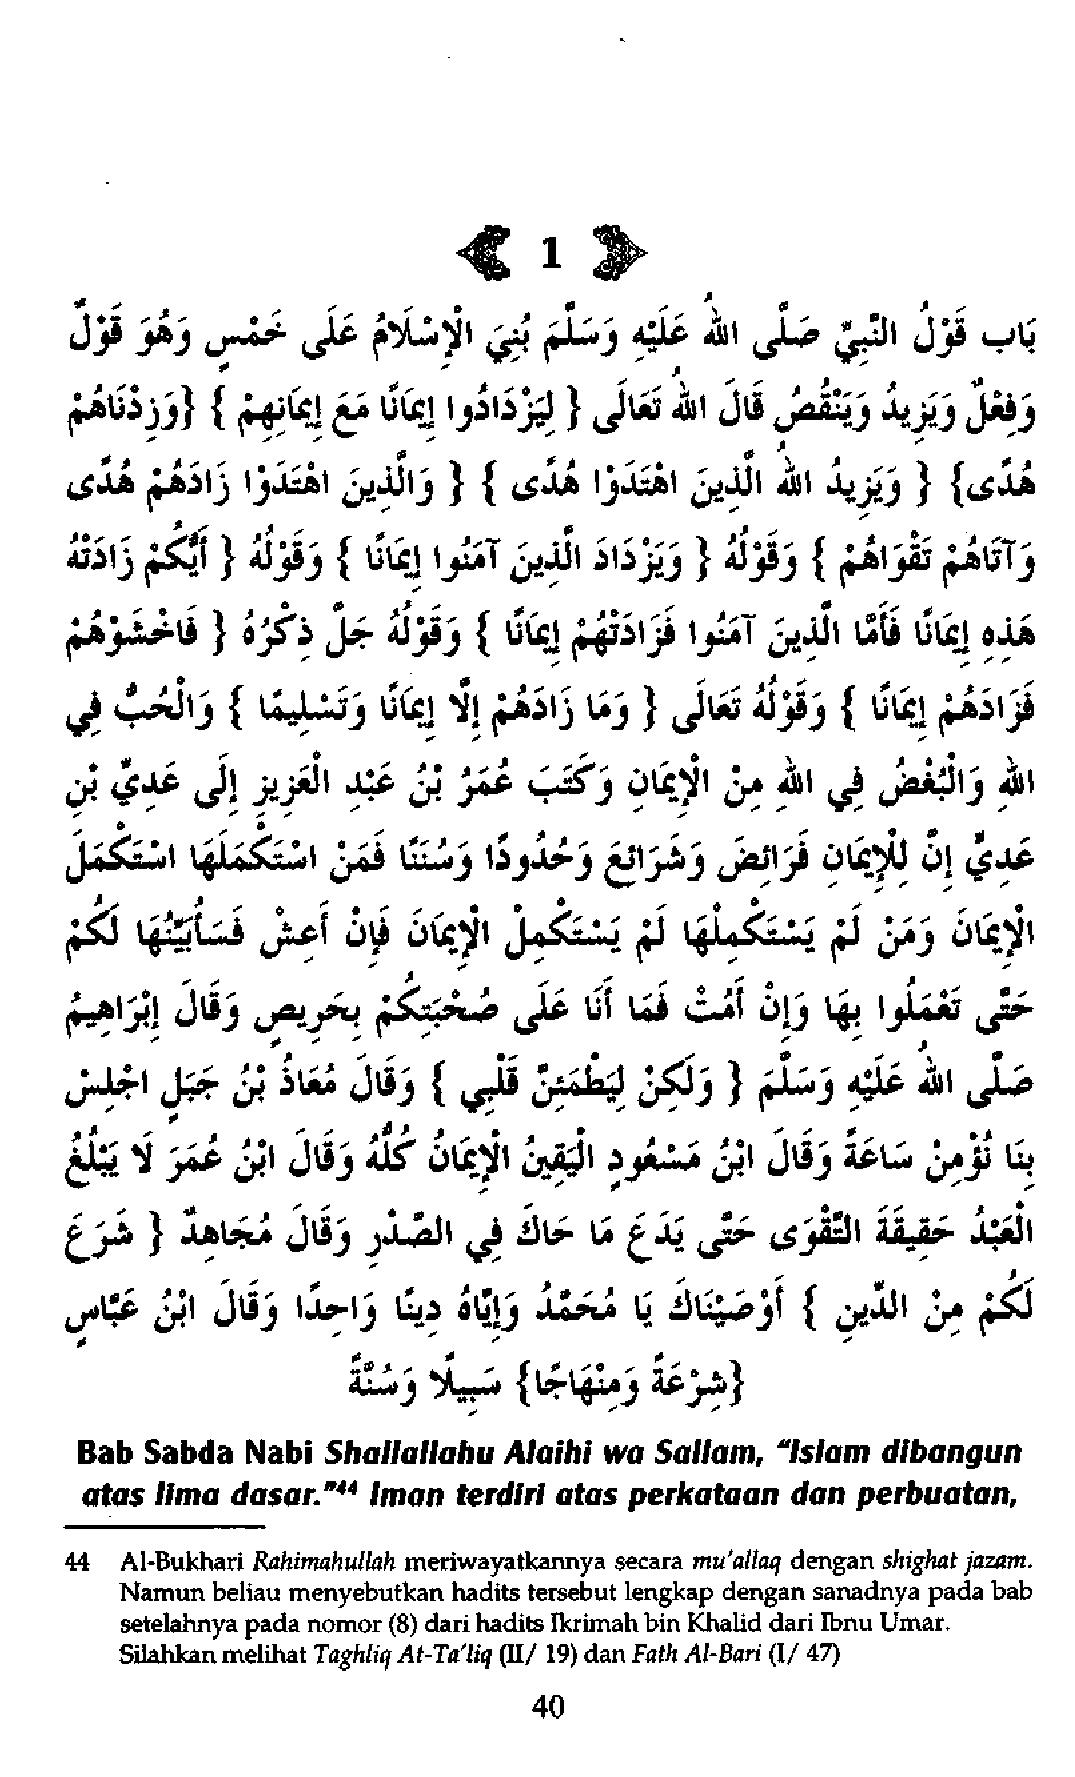 1
بَاب قَوْلُ النَّبِيِّ صَلَّى اللهُ عَلَيْهِ وَسَلَّمَ بُنِيَ الْإِسْلَامُ عَلَى خَمْسٍ وَهُوَ قَوْلٌ
وَفِعْلٌ وَيَزِيدُ وَيَنْقُصُ قَالَ اللهُ تَعَالَى { لِيَزْدَادُوا إِيمَانًا مَعَ إِيمَانِهِمْ } {وَزِدْنَاهُمْ
هُدًى} { وَيَزِيدُ اللهُ الَّذِينَ اهْتَدَوْا هُدًى } { وَالَّذِينَ اهْتَدَوْا زَادَهُمْ هُدًى
وَآتَاهُمْ تَقْوَاهُمْ } وَقَوْلُهُ { وَيَزْدَادَ الَّذِينَ آمَنُوا إِيمَانًا } وَقَوْلُهُ { أَيُّكُمْ زَادَتْهُ
هَذِهِ إِيمَانًا فَأَمَّا الَّذِينَ آمَنُوا فَزَادَتْهُمْ إِيمَانًا } وَقَوْلُهُ جَلَّ ذِكْرُهُ { فَاخْشَوْهُمْ
فَزَادَهُمْ إِيمَانًا } وَقَوْلُهُ تَعَالَى { وَمَا زَادَهُمْ إِلَّا إِيمَانًا وَتَسْلِيمًا } وَالْحُبُّ فِي
اللهِ وَالْبُغْضُ فِي اللهِ مِنْ الْإِيمَانِ وَكَتَبَ عُمَرُ بْنُ عَبْدِ الْعَزِيزِ إِلَى عَدِيِّ بْنِ
عَدِيٍّ إِنَّ لِلْإِيمَانِ فَرَائِضَ وَشَرَائِعَ وَحُدُودًا وَسُنَنًا فَمَنْ اسْتَكْمَلَهَا اسْتَكْمَلَ
الْإِيمَانَ وَمَنْ لَمْ يَسْتَكْمِلْهَا لَمْ يَسْتَكْمِلِ الْإِيمَانَ فَإِنْ أَعِشْ فَسَأُبَيِّنُهَا لَكُمْ
حَتَّى تَعْمَلُوا بِهَا وَإِنْ أَمُتْ فَمَا أَنَا عَلَى صُحْبَتِكُمْ بِحَرِيصٍ وَقَالَ إِبْرَاهِيمُ
صَلَّى اللهُ عَلَيْهِ وَسَلَّمَ { وَلَكِنْ لِيَطْمَئِنَّ قَلْبِي } وَقَالَ مُعَاذُ بْنُ جَبَلٍ اجْلِسْ
بِنَا نُؤْمِنْ سَاعَةً وَقَالَ ابْنُ مَسْعُودٍ الْيَقِينُ الْإِيمَانُ كُلُّهُ وَقَالَ ابْنُ عُمَرَ لَا يَبْلُغُ
الْعَبْدُ حَقِيقَةَ التَّقْوَى حَتَّى يَدَعَ مَا حَاكَ فِي الصَّدْرِ وَقَالَ مُجَاهِدٌ { شَرَعَ
لَكُمْ مِنْ الدِّينِ } أَوْصَيْنَاكَ يَا مُحَمَّدُ وَإِيَّاهُ دِينًا وَاحِدًا وَقَالَ ابْنُ عَبَّاسٍ
{شِرْعَةً وَمِنْهَاجًا} سَبِيلًا وَسُنَّةً
Bab Sabda Nabi Shallallahu Alaihi wa Sallam, "Islam dibangun
atas lima dasar."44 Iman terdiri atas perkataan dan perbuatan,
44 Al-Bukhari Rahimahullah meriwayatkannya secara mu'allaq dengan shighat jazam.
Namun beliau menyebutkan hadits tersebut lengkap dengan sanadnya pada bab
setelahnya pada nomor (8) dari hadits Ikrimah bin Khalid dari Ibnu Umar.
Silahkan melihat Taghliq At-Ta'liq (II/ 19) dan Fath Al-Bari (I/ 47)
40